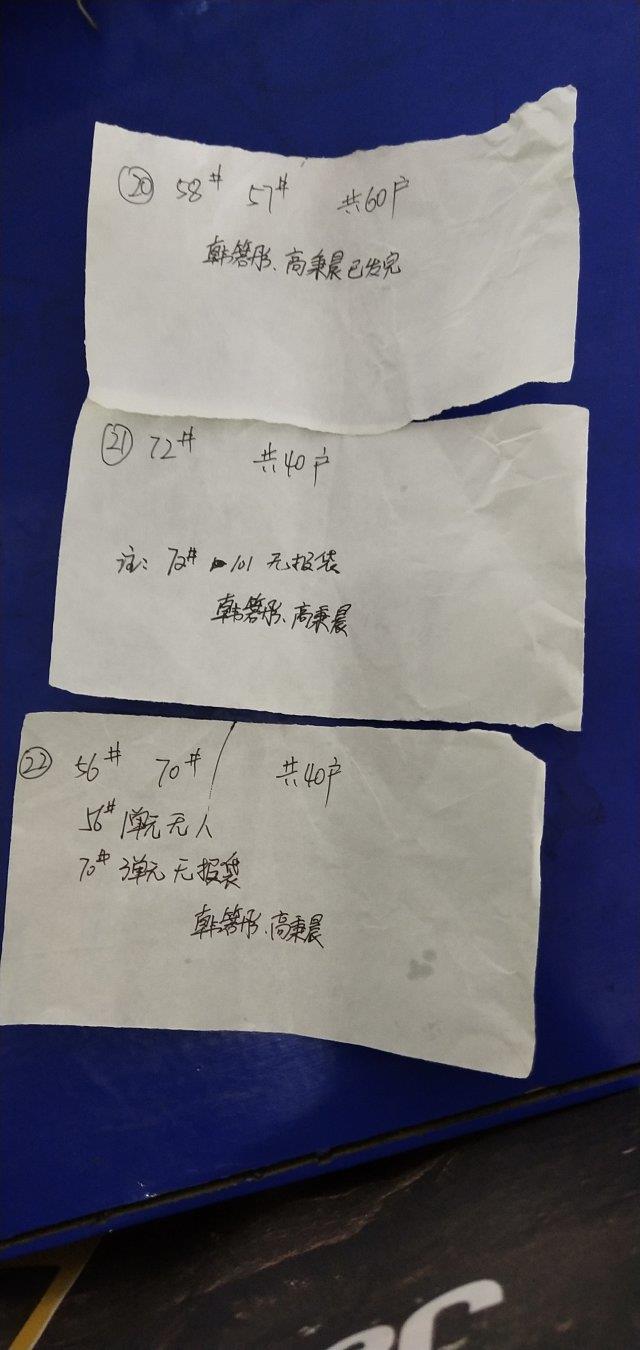 ⑳ 58# 57# 共60户
韩箬彤、高秉晨已发完
㉑ 72# 共40户
注: 72# 101 无报袋
韩箬彤、高秉晨
㉒ 56# 70# 共40户
56# 1单元 无人
70# 3单元 无报袋
韩箬彤、高秉晨